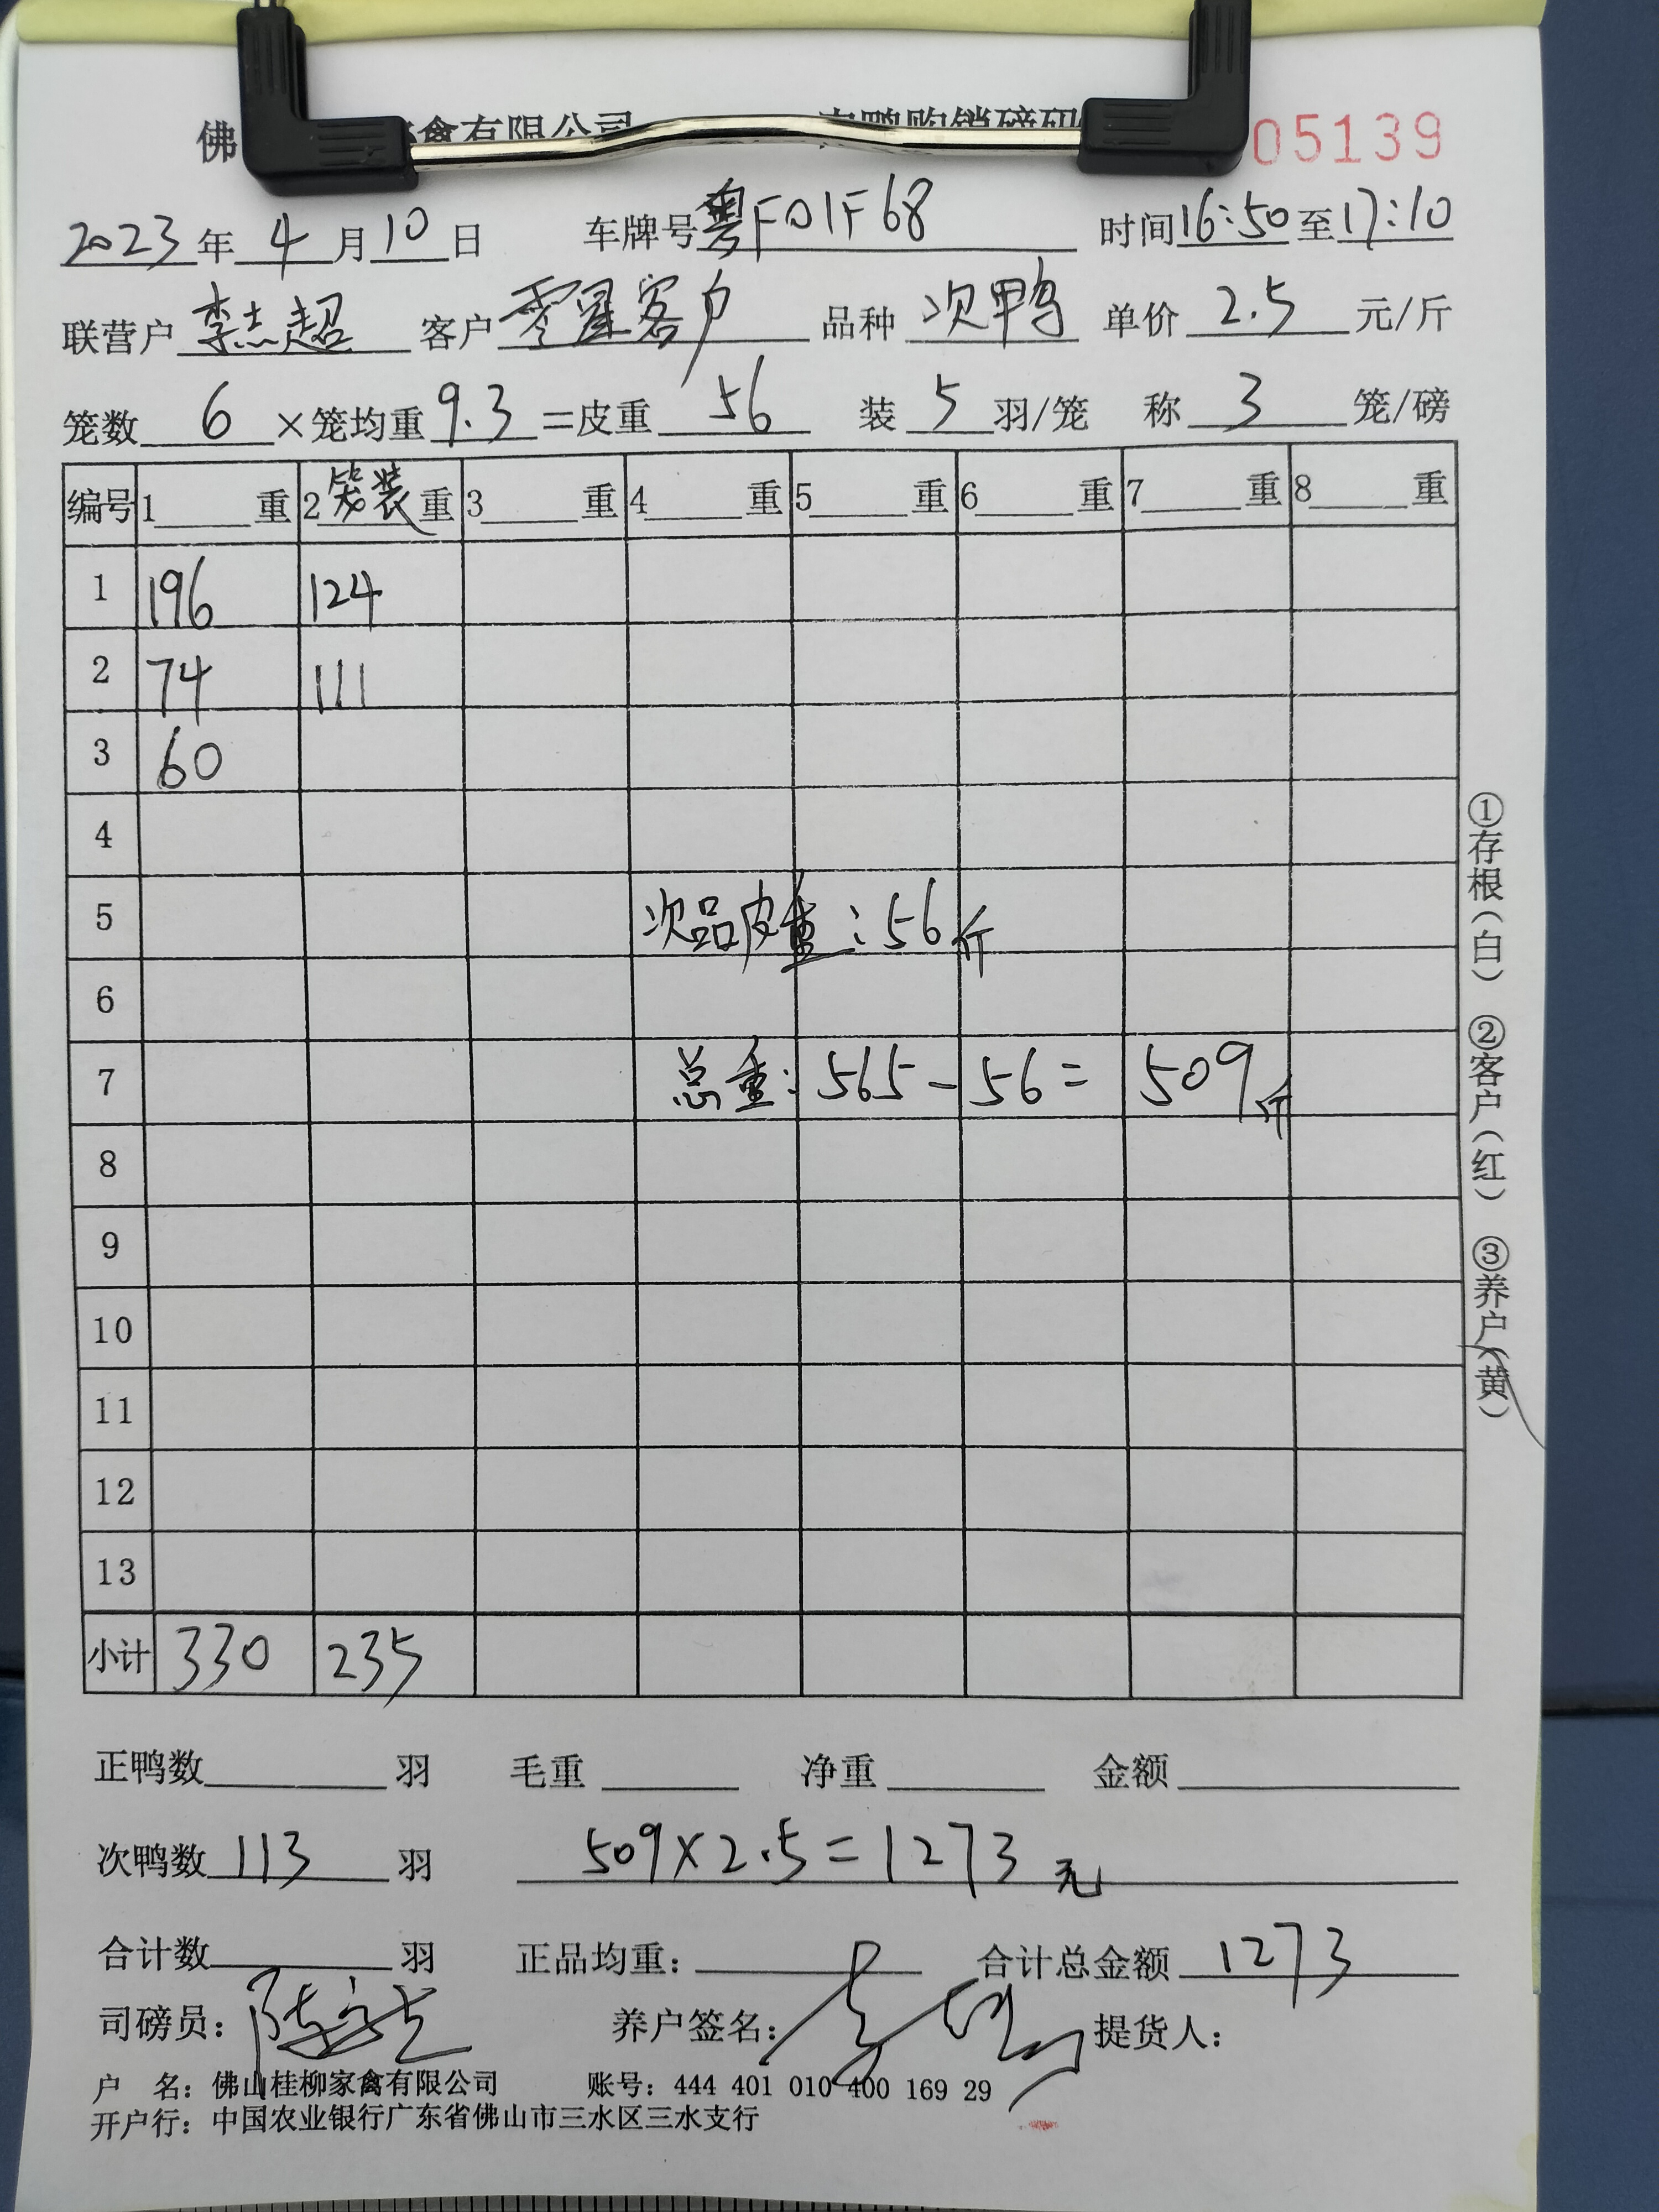 佛 家禽有限公司 肉鸭购销磅码 05139
2023年4月10日 车牌号粤F01F68 时间16:50至17:10
联营户李志超 客户零星客户 品种次鸭 单价2.5元/斤
笼数6×笼均重9.3=皮重56 装5羽/笼 称3笼/磅
编号 1 重 2 装重 3 重 4 重 5 重 6 重 7 重 8 重
1 196 124
2 74 111
3 60
4
5 次品皮重:56斤
6
7 总重:565-56=509斤
8
9
10
11
12
13
小计 330 235
正鸭数 羽 毛重 净重 金额
次鸭数113羽 509×2.5=1273元
合计数 羽 正品均重: 合计总金额1273
司磅员: 养户签名: 提货人:
户 名:佛山桂柳家禽有限公司 账号:444 401 010 400 169 29
开户行:中国农业银行广东省佛山市三水区三水支行
①存根(白) ②客户(红) ③养户(黄)